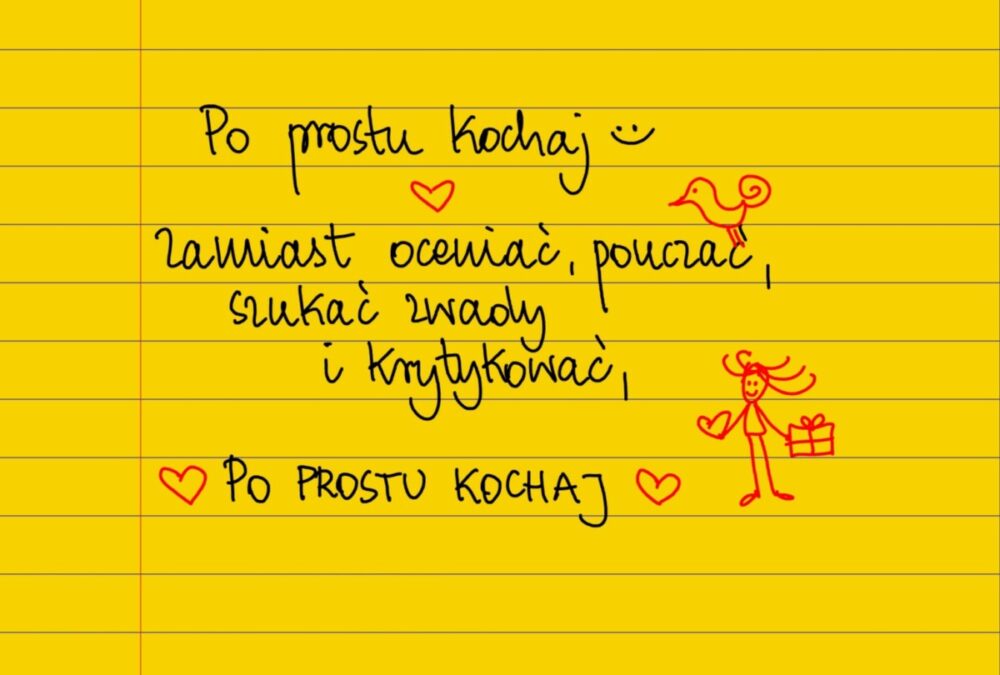 Po prostu kochaj :)
zamiast oceniać, pouczać,
szukać zwady
i krytykować,
Po PROSTU KOCHAJ